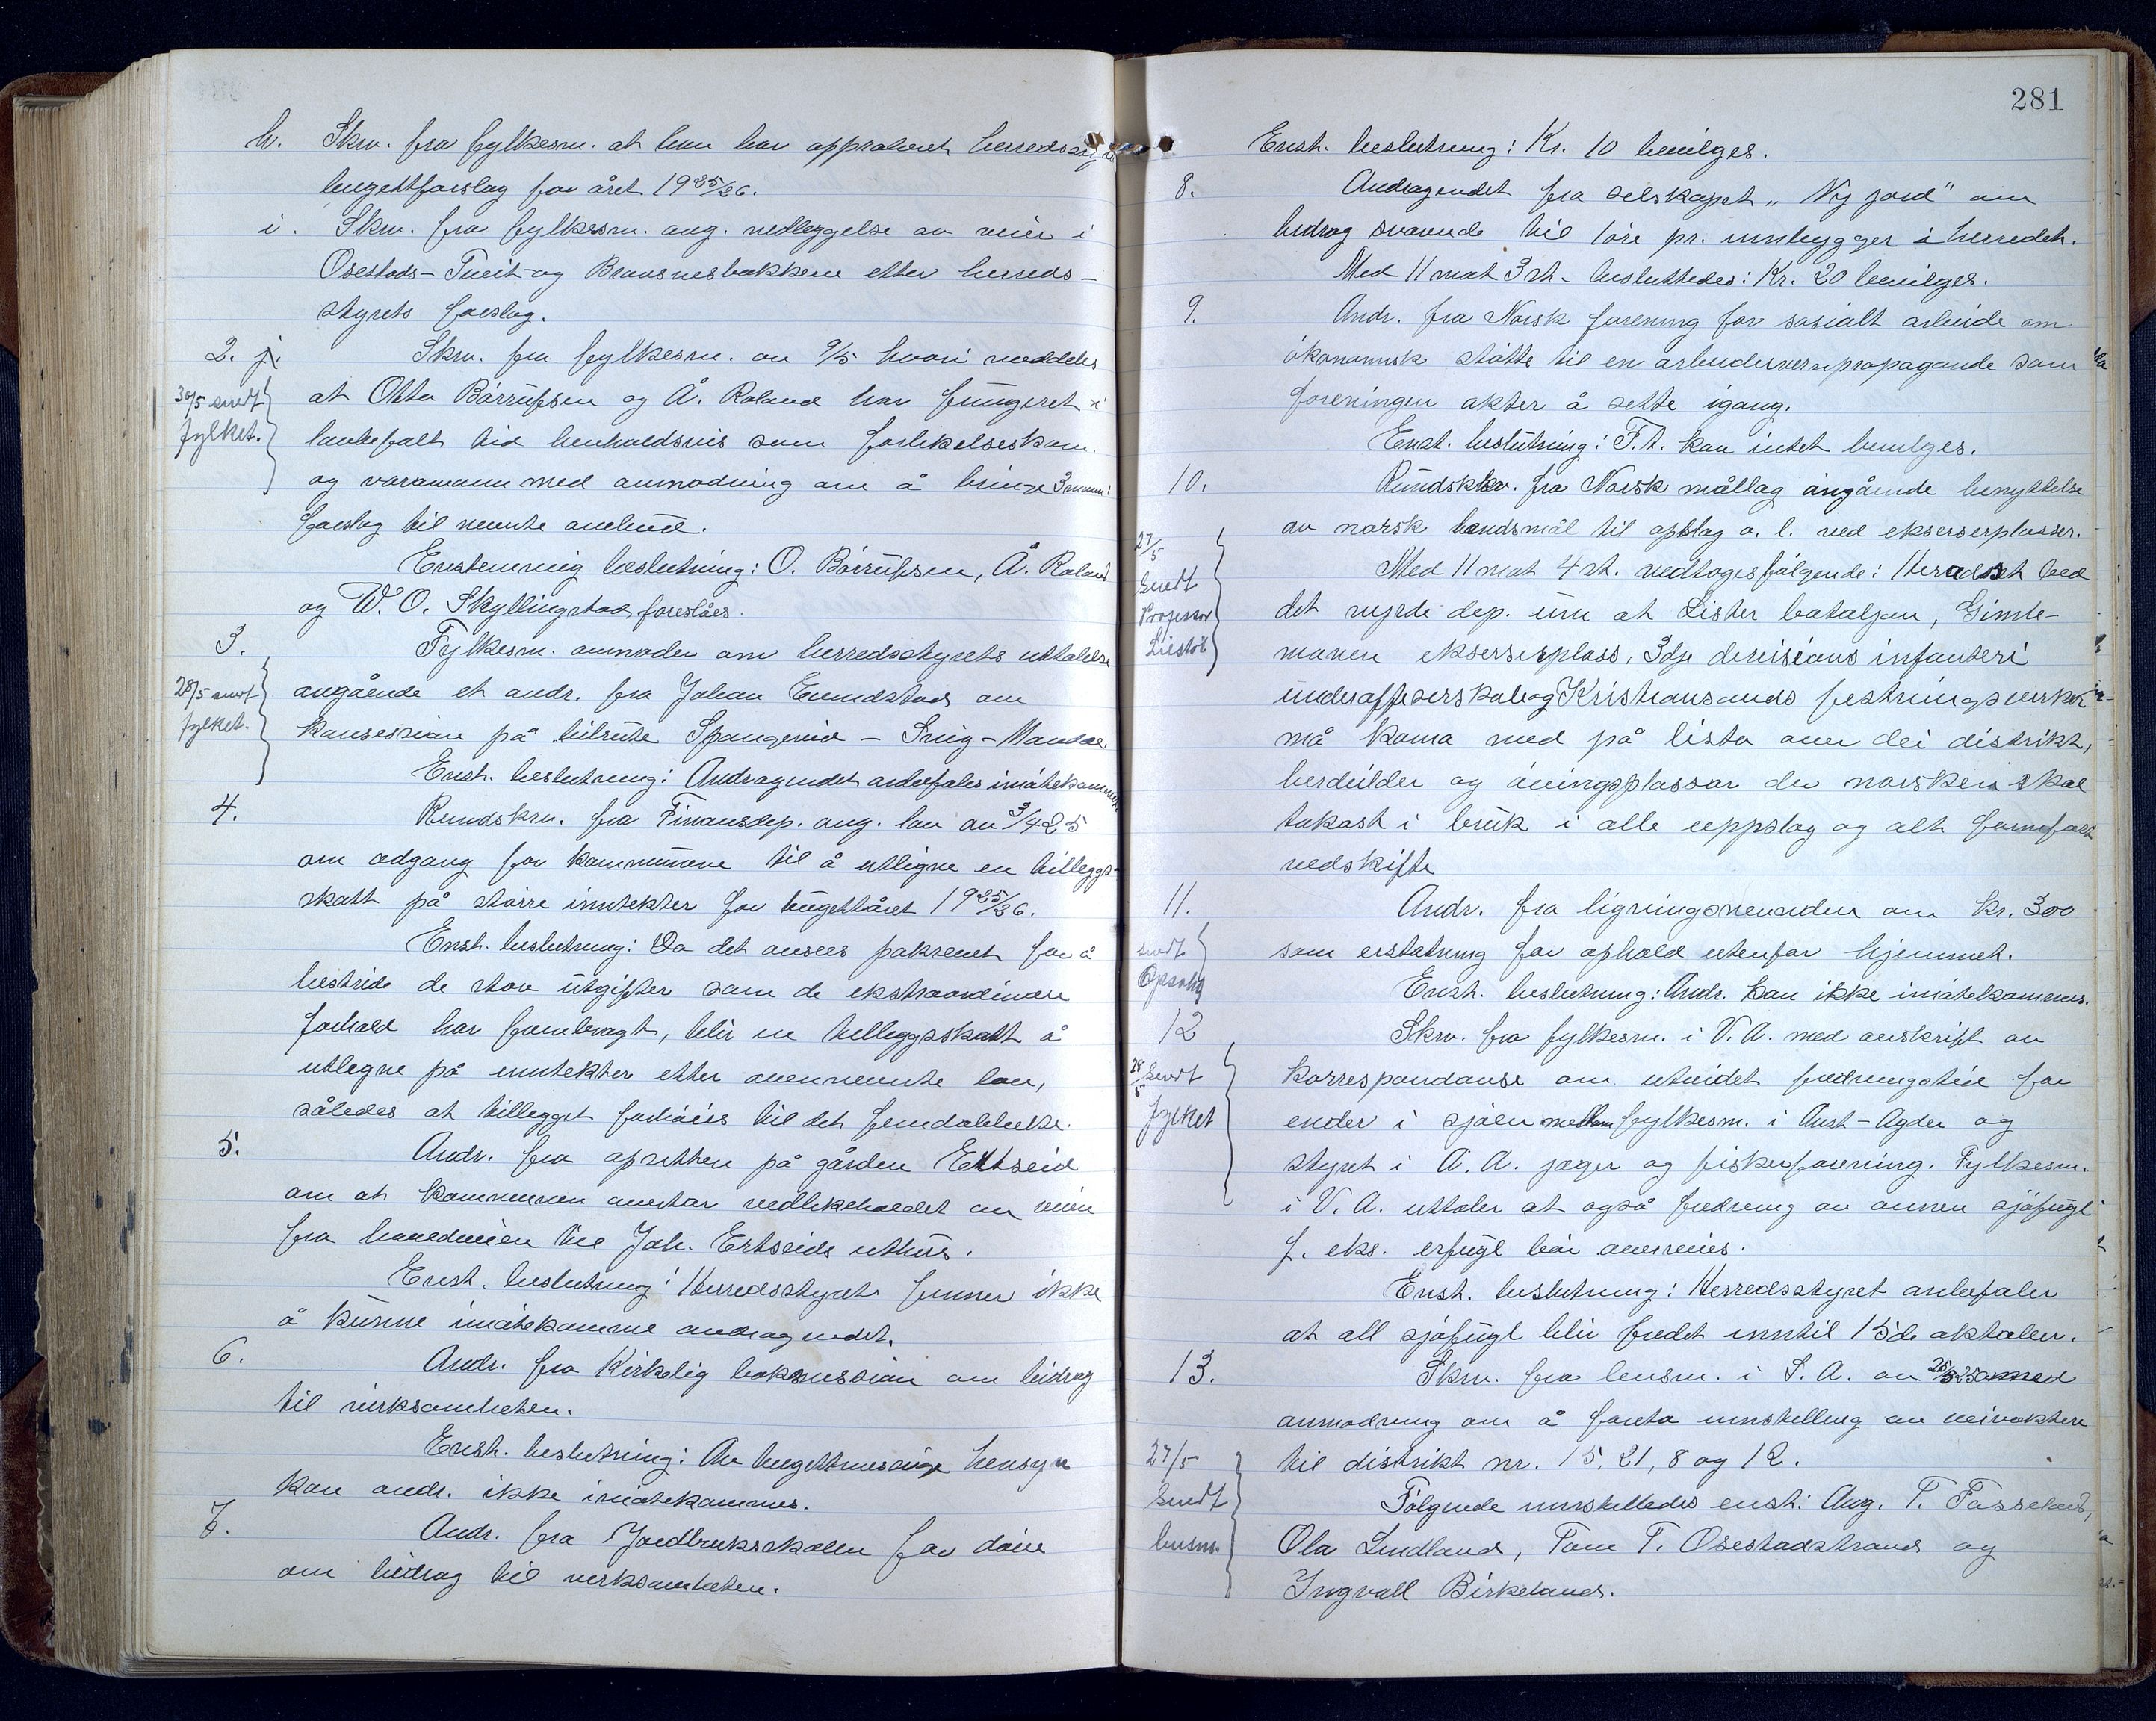 h. Skrv. fra fylkesm. at han har approberet herredsstyrets
bugettforslag for året 1925/26.
i. Skrv. fra fylkesm. ang. nedleggelse av veier i
Osestads- Tveit- og Bransnesbakkene etter herreds-
styrets forslag.
2. j. Skrv. fra fylkesm. av 9/5 hvori meddeles
30/5 sendt fylket. at Otto Bårrufsen og Å. Roland har fungeret i
lovbefalt tid henholdsvis som forlikelseskom.
og varamann med anmodning om å bringe 3 menn i
forslag til nevnte ombud.
Enstemmig beslutning: O. Bårrufsen, Å. Roland
og W. O. Skyllingstad foreslåes.
3. Fylkesm. anmoder om herredsstyrets uttalelse
28/5 sendt fylket. angående et andr. fra Johan Evindstad om
konsesjon på bilrute Spangereid - Snig - Mandal.
Enst. beslutning: Andragendet anbefales imøtekommet.
4. Rundskrv. fra Finansdep. ang. lov av 3/4 25
om adgang for kommunene til å utligne en tilleggs-
skatt på større inntekter for bugettåret 1925/26.
Enst. beslutning: Da det ansees påkrevet for å
bestride de store utgifter som de ekstraordinære
forhold har frembragt, blir en tilleggsskatt å
utlegne på inntekter etter ovennevnte lov,
således at tillegget forhøies til det femdobbelte.
5. Andr. fra opsitterne på gården Ertseid
om at kommunen overtar vedlikeholdet av veien
fra hovedveien til Joh. Ertseids uthus.
Enst. beslutning: Herredsstyret finner ikke
å kunne imøtekomme andragendet.
6. Andr. fra Kirkelig bokmission om bidrag
til virksomheten.
Enst. beslutning: Av bugettmessige hensyn
kan andr. ikke imøtekommes.
7. Andr. fra Jordbruksskolen for døve
om bidrag til virksomheten.
281
Enst. beslutning: Kr. 10 bevilges.
8. Andragendet fra selskapet „Ny jord" om
bidrag svarende til 1 øre pr. innbygger i herredet.
Med 11 mot 3 st. besluttedes: Kr. 20 bevilges.
9. Andr. fra Norsk forening for sosialt arbeide om
økonomisk støtte til en arbeidervernpropagande som
foreningen akter å sette igang.
Enst. beslutning: F. t. kan intet bevilges.
10. Rundskrv. fra Norsk mållag angående benyttelse
av norsk landsmål til opslag o. l. ved ekserserplasser.
27/5 Sendt Professor Liestøl Med 11 mot 4 st. vedtoges følgende: Heradet bed
det vyrde dep. um at Lister bataljon, Gimle-
moen ekserserplass, 3dje divisions infanteri
underoffiserskole og Kristiansands festningsverker
må koma med på lista over dei distrikt,
herdeilder og øvingsplassar der norsken skal
takast i bruk i alle uppslag og alt fornefalt
vedskifte
11. Andr. fra ligningsnevnden om kr. 300
sendt Opsahl som erstatning for ophold utenfor hjemmet.
Enst. beslutning: Andr. kan ikke imøtekommes.
12 Skrv. fra fylkesm. i V. A. med avskrift av
28/5 sendt fylket korrespondanse om utvidet fredningstid for
ender i sjøen mellem fylkesm. i Aust-Agder og
styret i A. A. jæger og fiskerforening. Fylkesm.
i V. A. uttaler at også fredning av annen sjøfugl
f. eks. erfugl bør overveies.
Enst. beslutning: Herredsstyret anbefaler
at all sjøfugl blir fredet inntil 15de oktober.
13. Skrv. fra lensm. i S. A. av med
anmodning om å foreta innstilling av veivoktere
27/5 Sendt lensm. til distrikt nr. 15, 21, 8 og 12.
Følgende innstilledes enst: Aug. T. Fasseland,
Ola Lindland, Tom T. Osestadstrand og
Ingvall Birkeland.